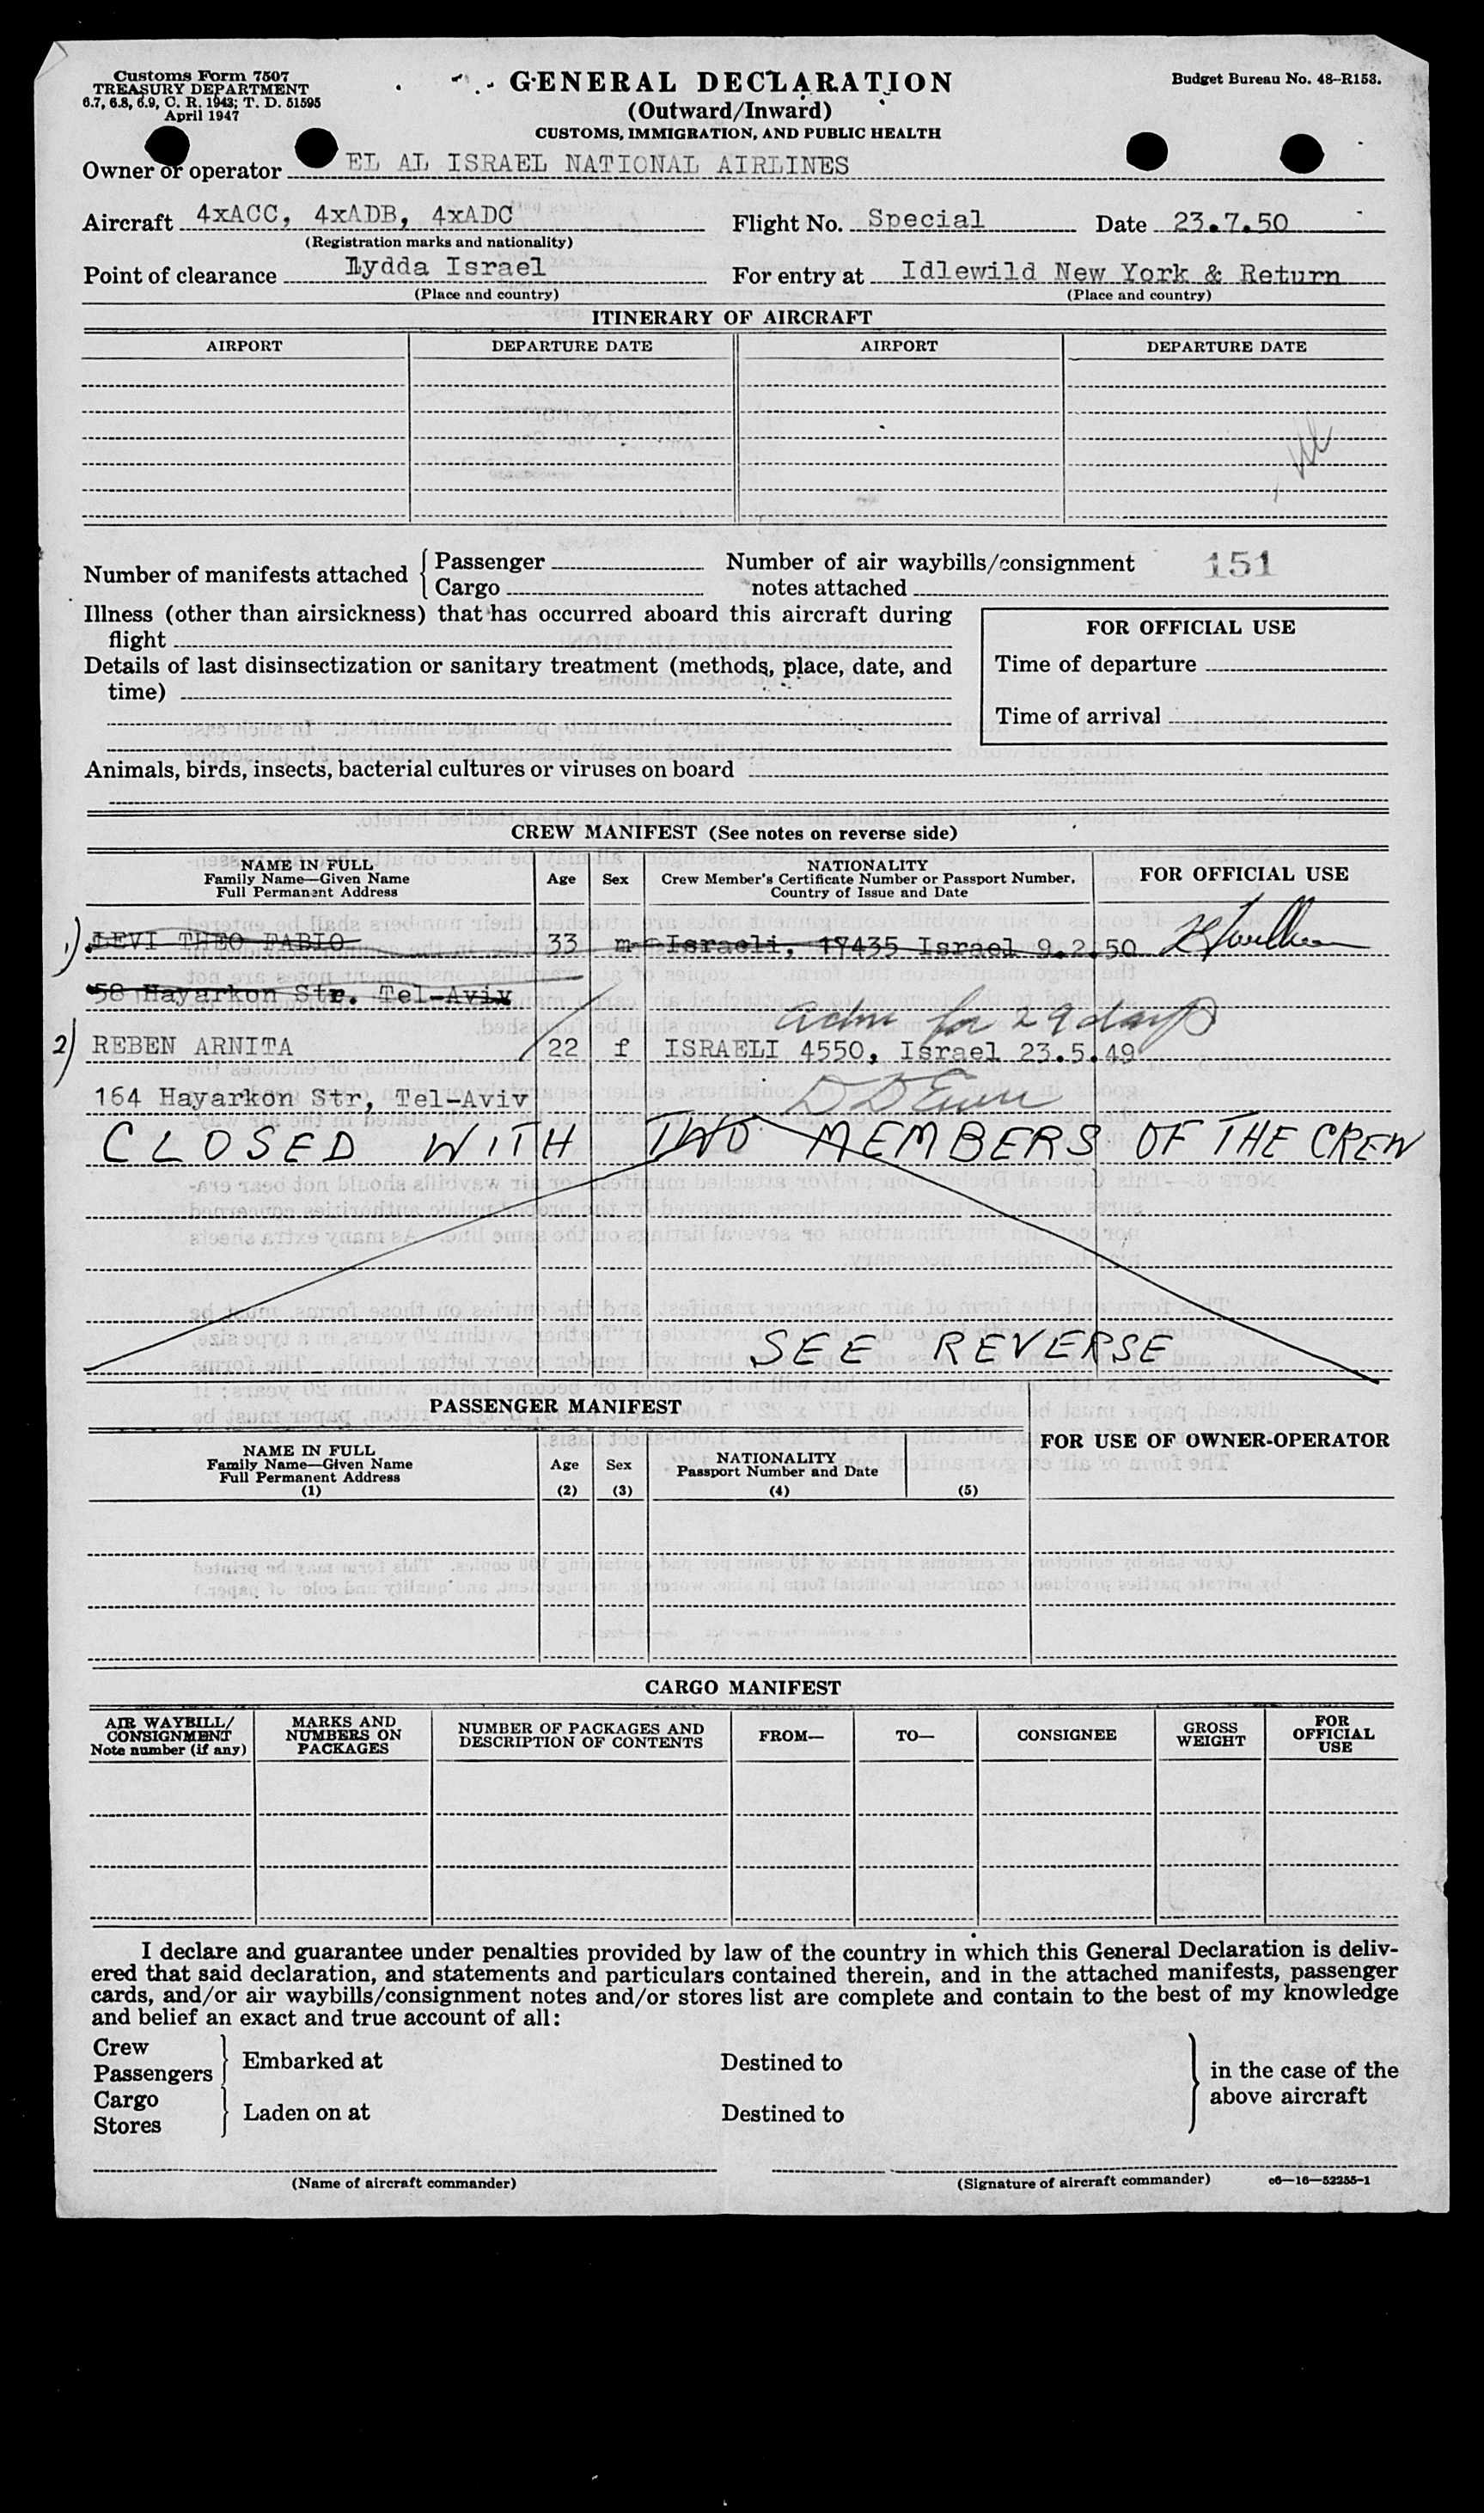 Customs Form 7507
TREASURY DEPARTMENT
6.7, 6.8, 6.9, C. R. 1943; T. D. 51595
April 1947
GENERAL DECLARATION
(Outward/Inward)
CUSTOMS, IMMIGRATION, AND PUBLIC HEALTH
Budget Bureau No. 48–R153.
Owner or operator EL AL ISRAEL NATIONAL AIRLINES
Aircraft 4xACC, 4xADB, 4xADC Flight No. Special Date 23.7.50
(Registration marks and nationality)
Point of clearance Lydda Israel For entry at Idlewild New York & Return
(Place and country) (Place and country)
ITINERARY OF AIRCRAFT
AIRPORT DEPARTURE DATE AIRPORT DEPARTURE DATE
Number of manifests attached { Passenger
Cargo
Number of air waybills/consignment
notes attached
151
Illness (other than airsickness) that has occurred aboard this aircraft during
flight
Details of last disinsectization or sanitary treatment (methods, place, date, and
time)
FOR OFFICIAL USE
Time of departure
Time of arrival
Animals, birds, insects, bacterial cultures or viruses on board
CREW MANIFEST (See notes on reverse side)
NAME IN FULL
Family Name—Given Name
Full Permanent Address
Age
Sex
NATIONALITY
Crew Member's Certificate Number or Passport Number,
Country of Issue and Date
FOR OFFICIAL USE
1) LEVI THEO FABIO 33 m Israeli, 17435 Israel 9.2.50
58 Hayarkon Str. Tel-Aviv
adm for 29 days
2) REBEN ARNITA 22 f ISRAELI 4550, Israel 23.5.49
164 Hayarkon Str, Tel-Aviv
CLOSED WITH TWO MEMBERS OF THE CREW
SEE REVERSE
PASSENGER MANIFEST
NAME IN FULL
Family Name—Given Name
Full Permanent Address
(1)
Age
(2)
Sex
(3)
NATIONALITY
Passport Number and Date
(4)
(5)
FOR USE OF OWNER-OPERATOR
CARGO MANIFEST
AIR WAYBILL/
CONSIGNMENT
Note number (if any)
MARKS AND
NUMBERS ON
PACKAGES
NUMBER OF PACKAGES AND
DESCRIPTION OF CONTENTS
FROM—
TO—
CONSIGNEE
GROSS
WEIGHT
FOR
OFFICIAL
USE
I declare and guarantee under penalties provided by law of the country in which this General Declaration is deliv-
ered that said declaration, and statements and particulars contained therein, and in the attached manifests, passenger
cards, and/or air waybills/consignment notes and/or stores list are complete and contain to the best of my knowledge
and belief an exact and true account of all:
Crew
Passengers } Embarked at Destined to
Cargo
Stores } Laden on at Destined to
} in the case of the
above aircraft
(Name of aircraft commander) (Signature of aircraft commander) c6—16—52255-1